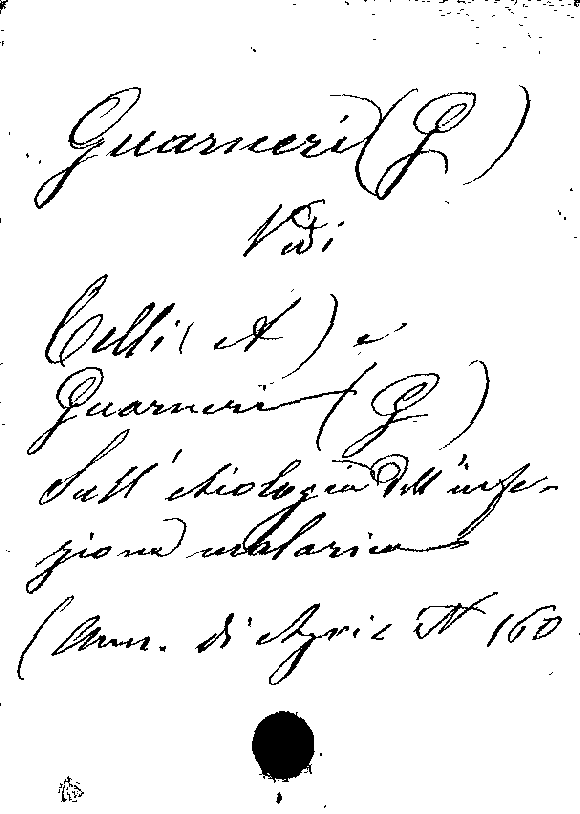 Guarneri (G)
Vedi
Celli (A) e
Guarneri (G)
Sull' etiologia dell' infe-
zione malarica
(Ann. di Agric N 160